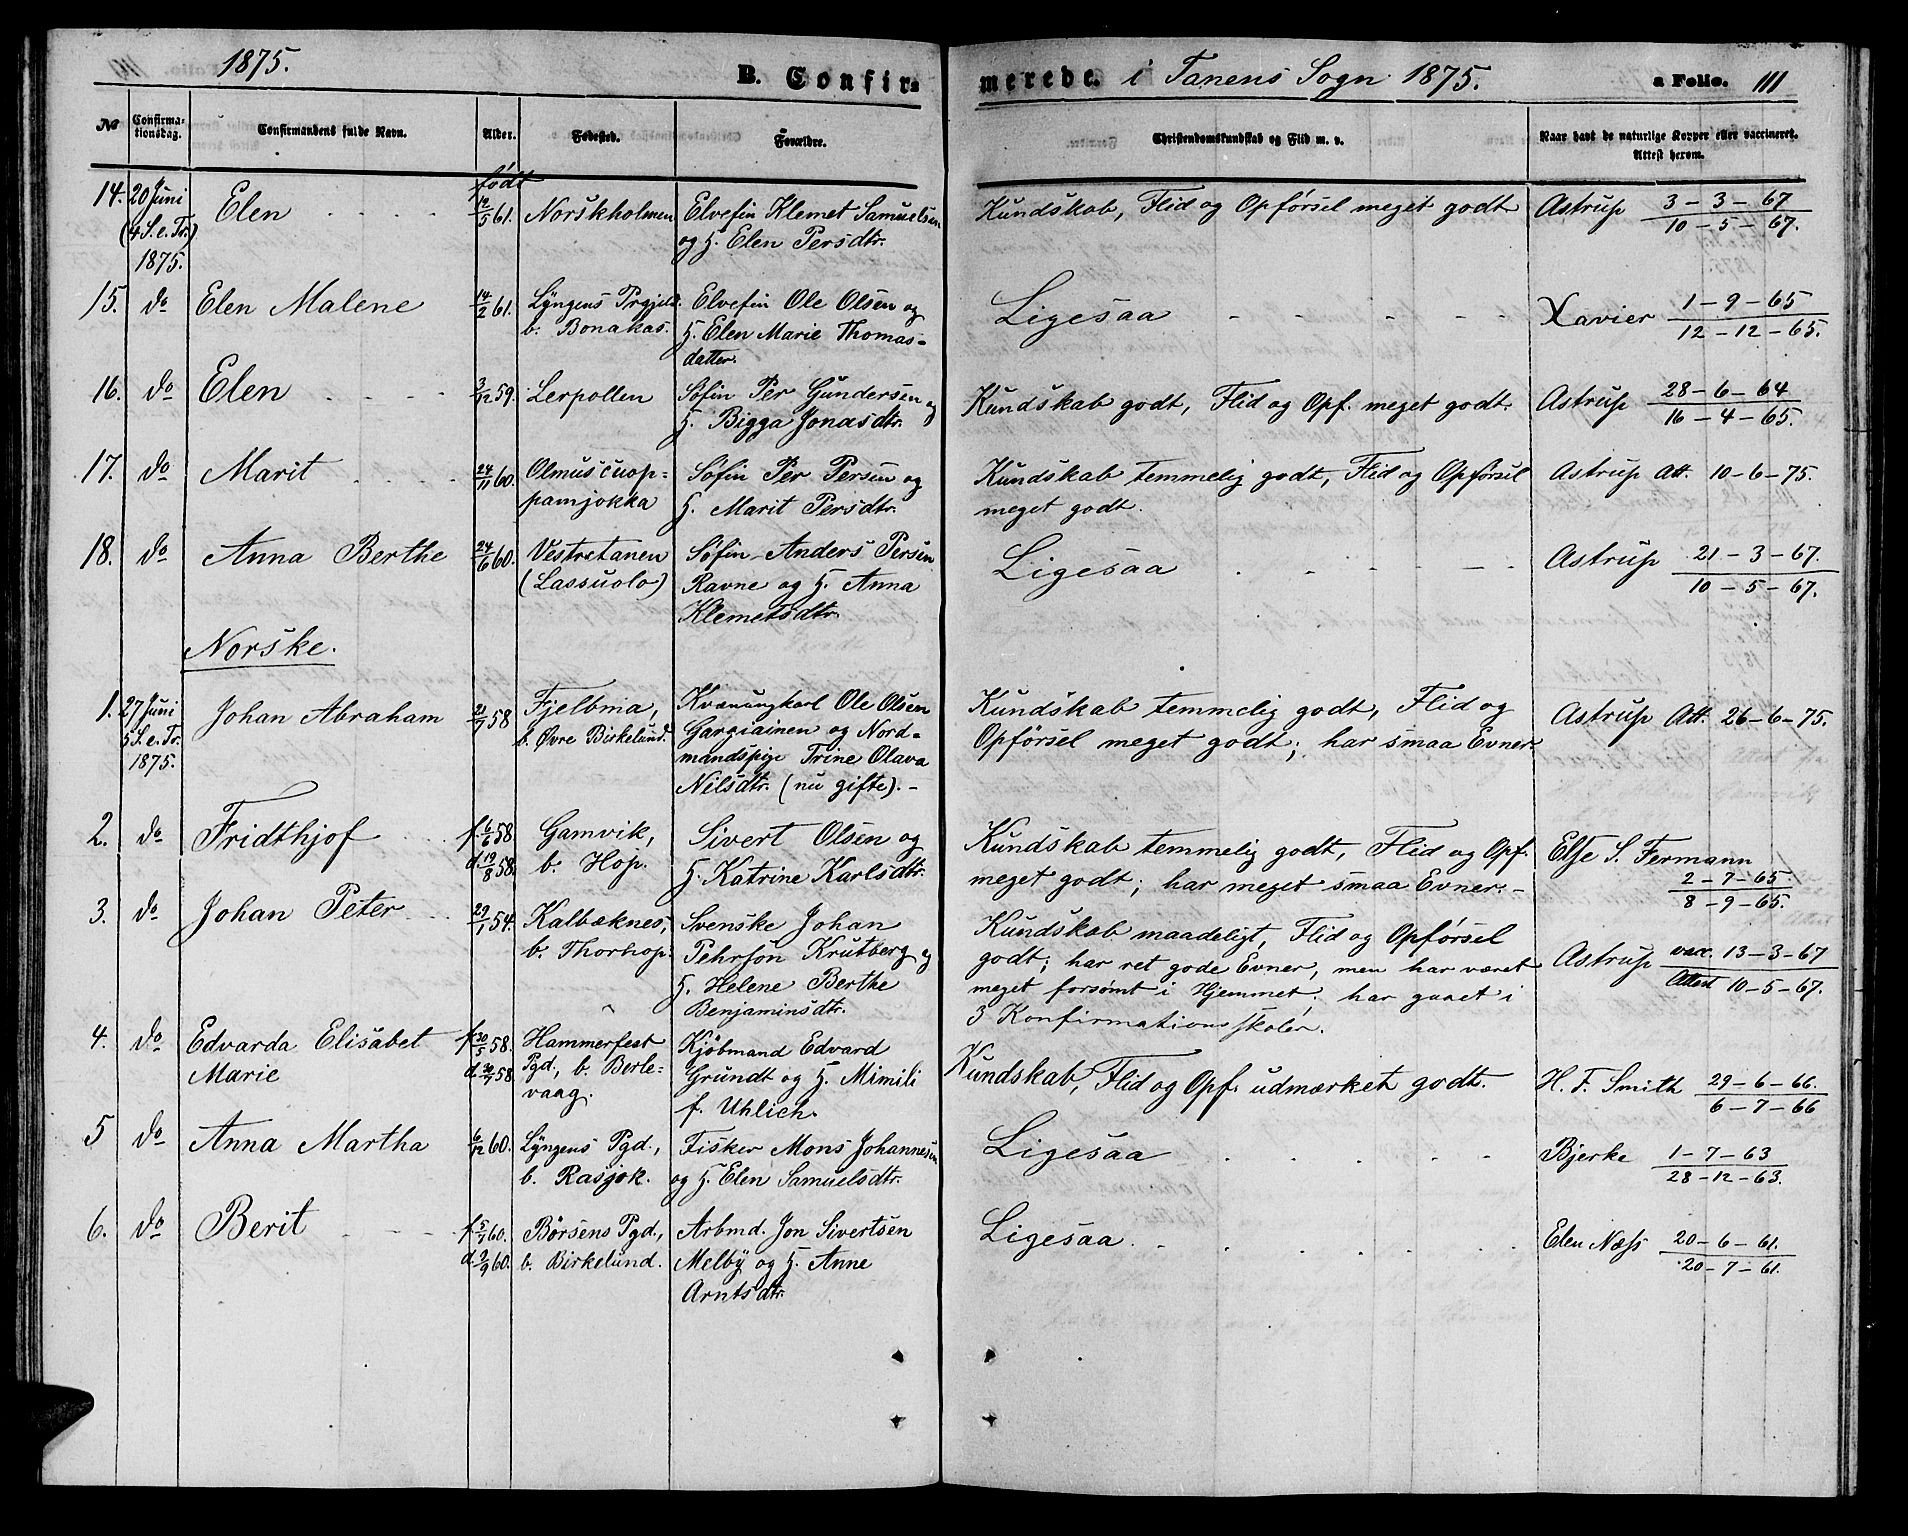 1875.
B. Confirmerede. i Tanens Sogn 1875. a Folio. 111
No Confirmationsdag. Confirmandens fulde Navn. Alder. Fødested. Forældre. Christendomskundskab og Flid m. v. Naar havt de naturlige Kopper eller vaccineret. Attest herom.
14. 20 Juni Elen født 12/5 61. Norskholmen Elvefin Klemet Samuelsen Kundskab, Flid og Opförsel meget godt Astrup 3-3-67
(4 S. e. Tr.) og H. Elen Persdtr. 10-5-67.
1875.
15. do Elen Malene 14/2 61. Lyngens Prgjeld. Elvefin Ole Olsen og Ligesaa Xavier 1-9-65
b. Bonakas. H. Elen Marie Thomas- 12-12-65.
datter.
16. do Elen 3/12 59. Lerpollen Söfin Per Gundersen og Kundskab godt, Flid og Opf. meget godt. Astrup 28-6-64
H. Bigga Jonasdtr. 16-4-65.
17. do Marit 24/11 60. Olmuscuop- Söfin Per Persen og Kundskab temmelig godt, Flid og Opförsel Astrup Att. 10-6-75.
pamjokka H. Marit Persdtr. meget godt.
18. do Anna Berthe 24/6 60. Vestretanen Söfin Anders Persen Ligesaa Astrup 21-3-67.
(Lassuolo) Ravne og H. Anna 10-5-67.
Klemetsdtr.
Norske.
1. 27 Juni Johan Abraham 21/7 58 Fjelbma, Kvænungkarl Ole Olsen Kundskab temmelig godt, Flid og Astrup Att. 26-6-75.
5 S. e. Tr. b. Øvre Birkelund. Gargiainen og Nord- Opförsel meget godt; har smaa Evner.
1875. mandspige Trine Olava
Nilsdtr. (nu gifte).-
2. do Fridthjof f. 6/6 58. Gamvik, Sivert Olsen og Kundskab temmelig godt, Flid og Opf. Else S. Fermann
d. 19/8 58. b. Hop. H. Katrine Karlsdtr. meget godt; har meget smaa Evner.- 2-7-65
8-9-65.
3. do Johan Peter 29/1 54. Kalbæknes, Svenske Johan Kundskab maadeligt, Flid og Opförsel
b. Thorhop. Pehrson Krutberg og godt; har ret gode Evner, men har været Astrup vacc. 13-3-67
H. Helene Berthe meget forsømt i Hjemmet; har gaaet i Attest 10-5-67.
Benjaminsdtr. 3 Konfirmationsskoler.
4. do Edvarda Elisabet f. 30/5 58. Hammerfest Kjöbmand Edvard Kundskab, Flid og Opf. udmærket godt. H. F. Smith 29-6-66.
Marie Pgd., b. Berle- Grundt og H. Mimili 6-7-66
vaag. f. Uhlich.
5 do Anna Martha 6/12 60. Lyngens Pgd., Fisker Mons Johannesen Ligesaa Bjerke 1-7-63
b. Rasjok. og H. Elen Samuelsdtr. 28-12-63.
6. do Berit f. 5/1 60. Børsens Pgd., Arbmd. Jon Sivertsen Ligesaa Elen Næss 20-6-61.
d. 2/9 60. b. Birkelund. Melby og H. Anne 20-7-61.
Arntsdtr.